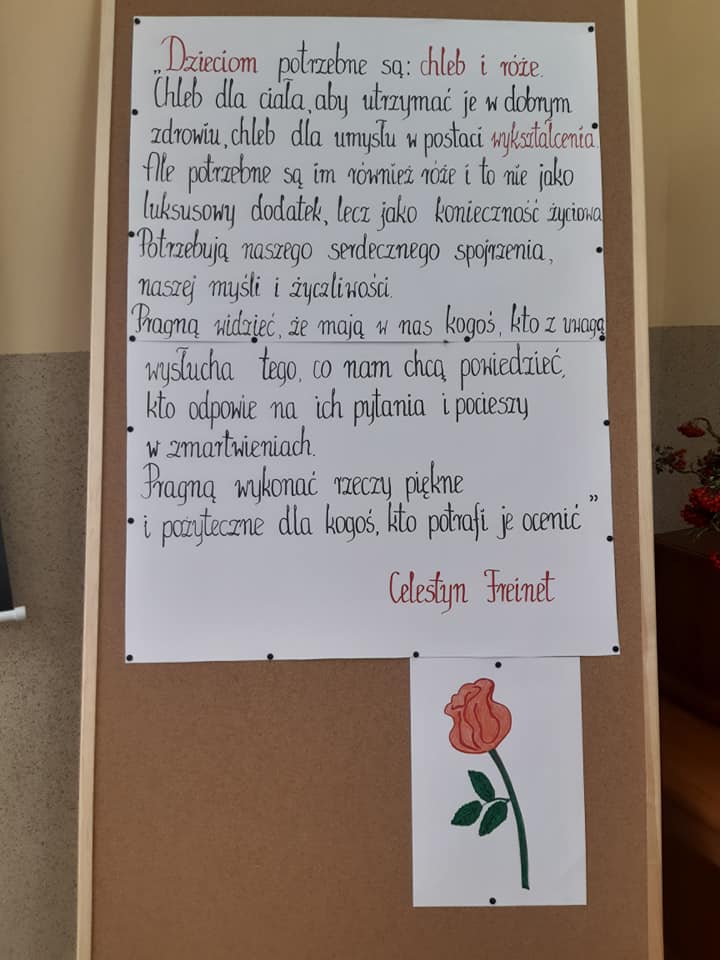 „Dzieciom potrzebne są: chleb i róże.
Chleb dla ciała, aby utrzymać je w dobrym
zdrowiu, chleb dla umysłu w postaci wykształcenia.
Ale potrzebne są im również róże i to nie jako
luksusowy dodatek, lecz jako konieczność życiowa
Potrzebują naszego serdecznego spojrzenia,
naszej myśli i życzliwości.
Pragną widzieć, że mają w nas kogoś, kto z uwagą
wysłucha tego, co nam chcą powiedzieć,
kto odpowie na ich pytania i pocieszy
w zmartwieniach.
Pragną wykonać rzeczy piękne
i pożyteczne dla kogoś, kto potrafi je ocenić”
Celestyn Freinet